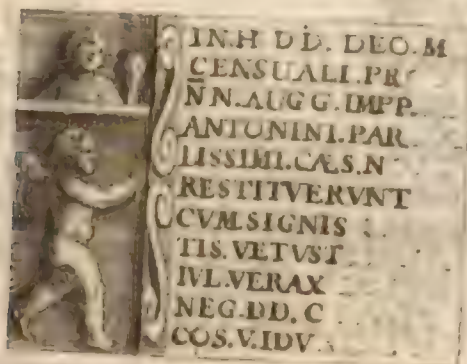 IN.H DD. DEO.M
CENSUALI.PR
N̄N.AUGG.IMPP.
ANTONINI.PAR
LISSIMI.CÆS.N
RESTITVERVNT
CVM.SIGNIS
TIS.VETVST
IVL.VERAX
NEG.DD.C
COS.V.IDV